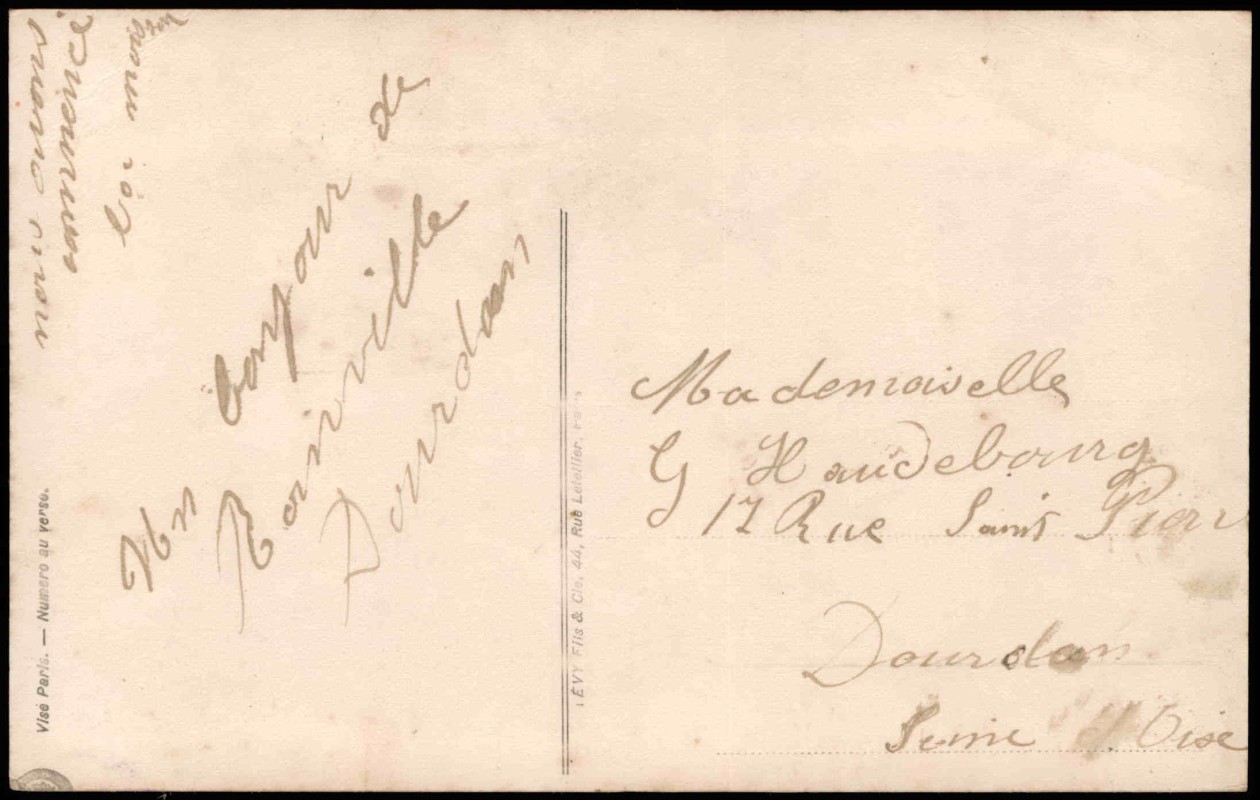 nous avons
commencé
la moisson
Un bonjour de
Roinville
Dourdan
Mademoiselle
G Haudebourg
17 Rue Saint Pierr
Dourdan
Seine d'Oise
Visé Paris. — Numéro au verso.
LÉVY Fils & Cie, 44, Rue Letellier, Paris